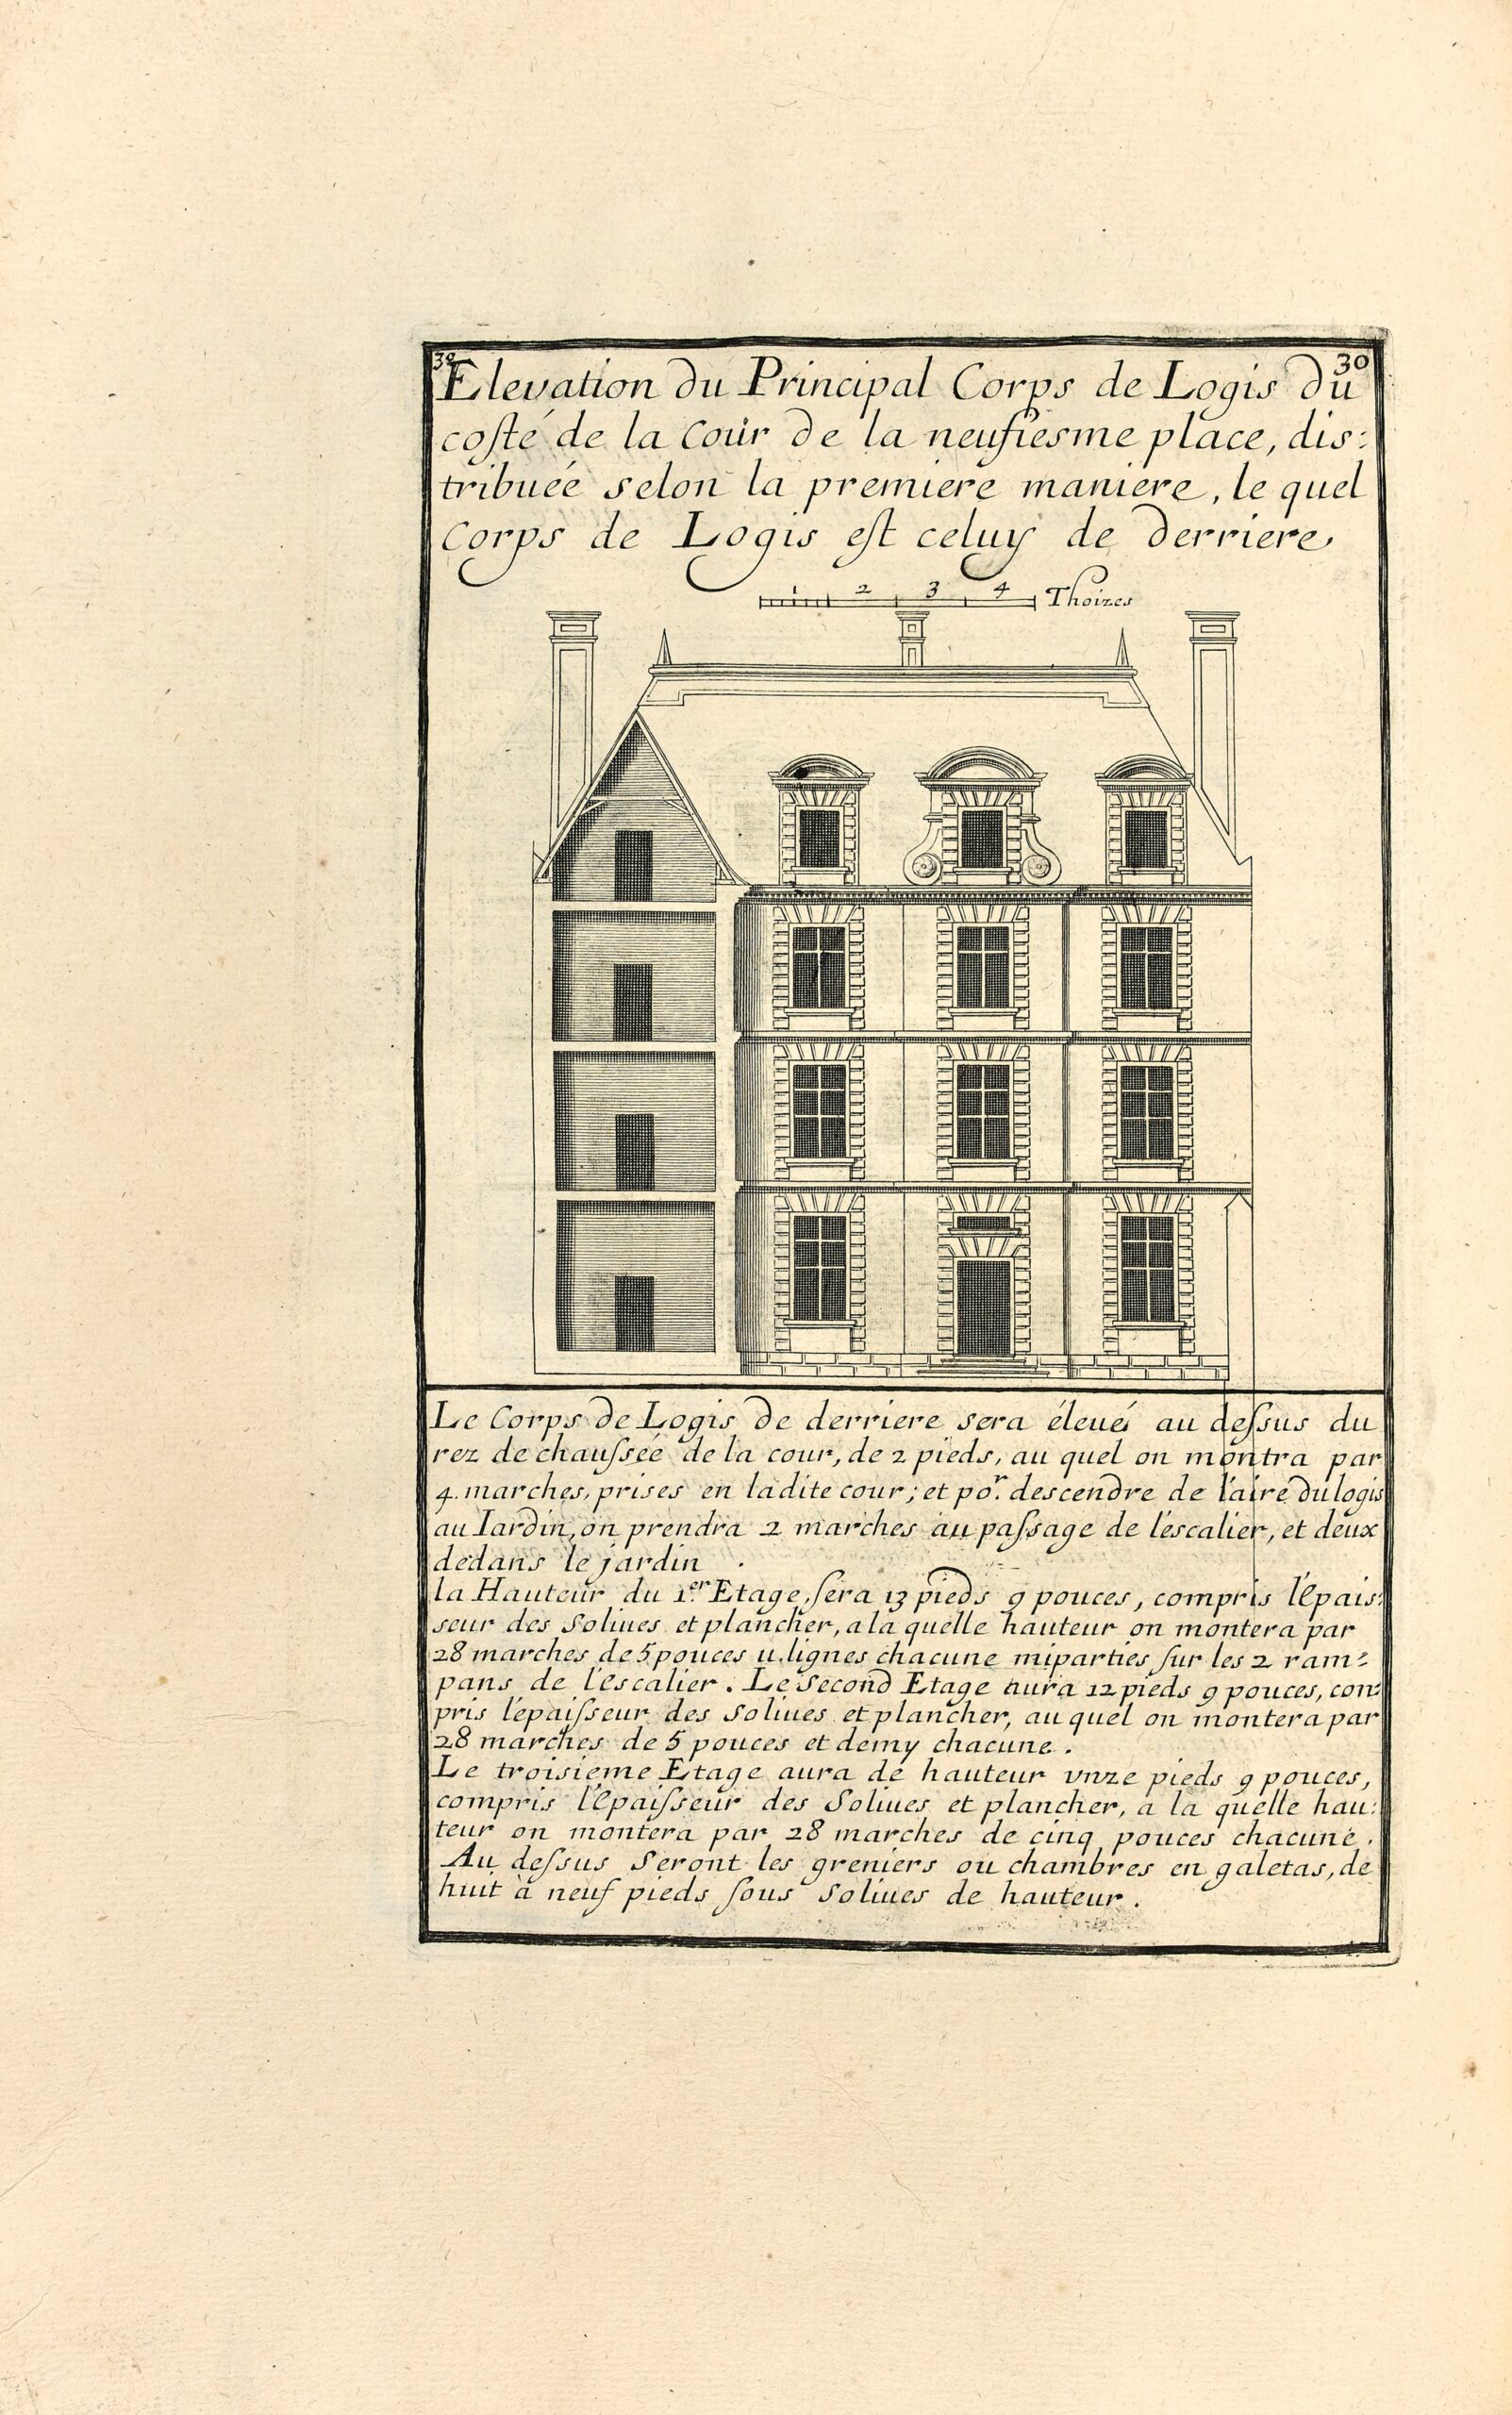 30 30
Elevation du Principal Corps de Logis du
coſté de la Cour de la neufiesme place, dis:
tribuéé selon la premiere maniere, le quel
Corps de Logis eſt celuy de derriere
1 2 3 4 Thoizes
Le Corps de Logis de derriere sera éleué au deſsus du
rez de chauſséé de la cour, de 2 pieds, au quel on montra par
4. marches, prises en ladite cour; et por. descendre de l'aire du logis
au Iardin, on prendra 2 marches au paſsage de l'escalier, et deux
dedans le jardin
la Hauteur du 1.er Etage, ſera 13 pieds 9 pouces, compris l'Epais:
seur des Soliues et plancher, a la quelle hauteur on montera par
28 marches de 5 pouces 11. lignes chacune miparties ſur les 2 ram:
pans de l'escalier. Le Second Etage aura 12 pieds 9 pouces, com:
pris l'epaiſseur des Soliues et plancher, au quel on montera par
28 marches de 5 pouces et demy chacune.
Le troisiéme Etage aura de hauteur vnze pieds 9 pouces,
compris l'Epaiſseur des Soliues et plancher, a la quelle hau:
teur on montera par 28 marches de cinq pouces chacune.
Au deſsus Seront les greniers ou chambres en galetas, de
huit à neuf pieds ſous Soliues de hauteur.